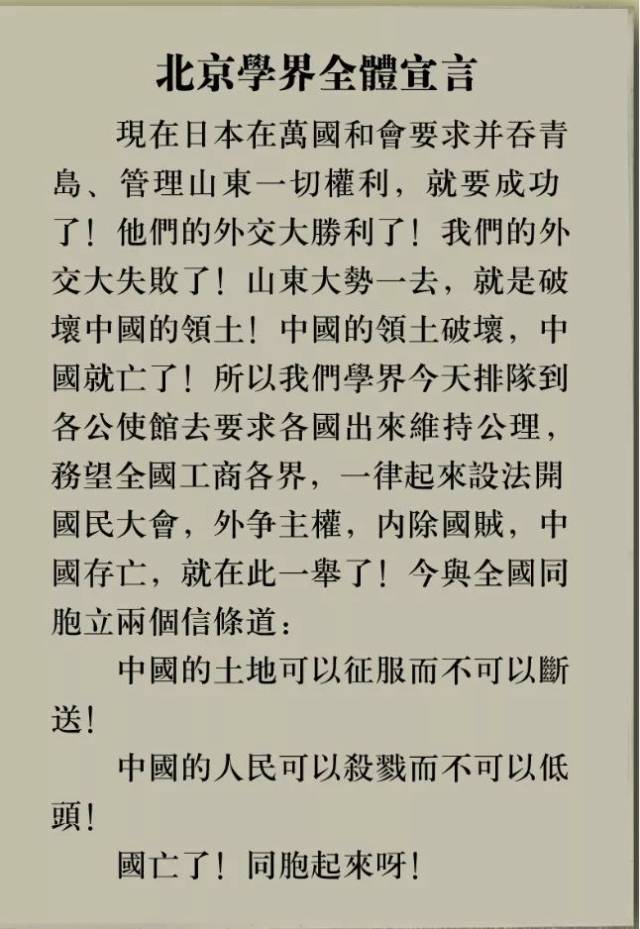 北京學界全體宣言
現在日本在萬國和會要求并吞青
島、管理山東一切權利，就要成功
了！他們的外交大勝利了！我們的外
交大失敗了！山東大勢一去，就是破
壞中國的領土！中國的領土破壞，中
國就亡了！所以我們學界今天排隊到
各公使館去要求各國出來維持公理，
務望全國工商各界，一律起來設法開
國民大會，外争主權，内除國賊，中
國存亡，就在此一舉了！今與全國同
胞立兩個信條道：
中國的土地可以征服而不可以斷
送！
中國的人民可以殺戮而不可以低
頭！
國亡了！同胞起來呀！